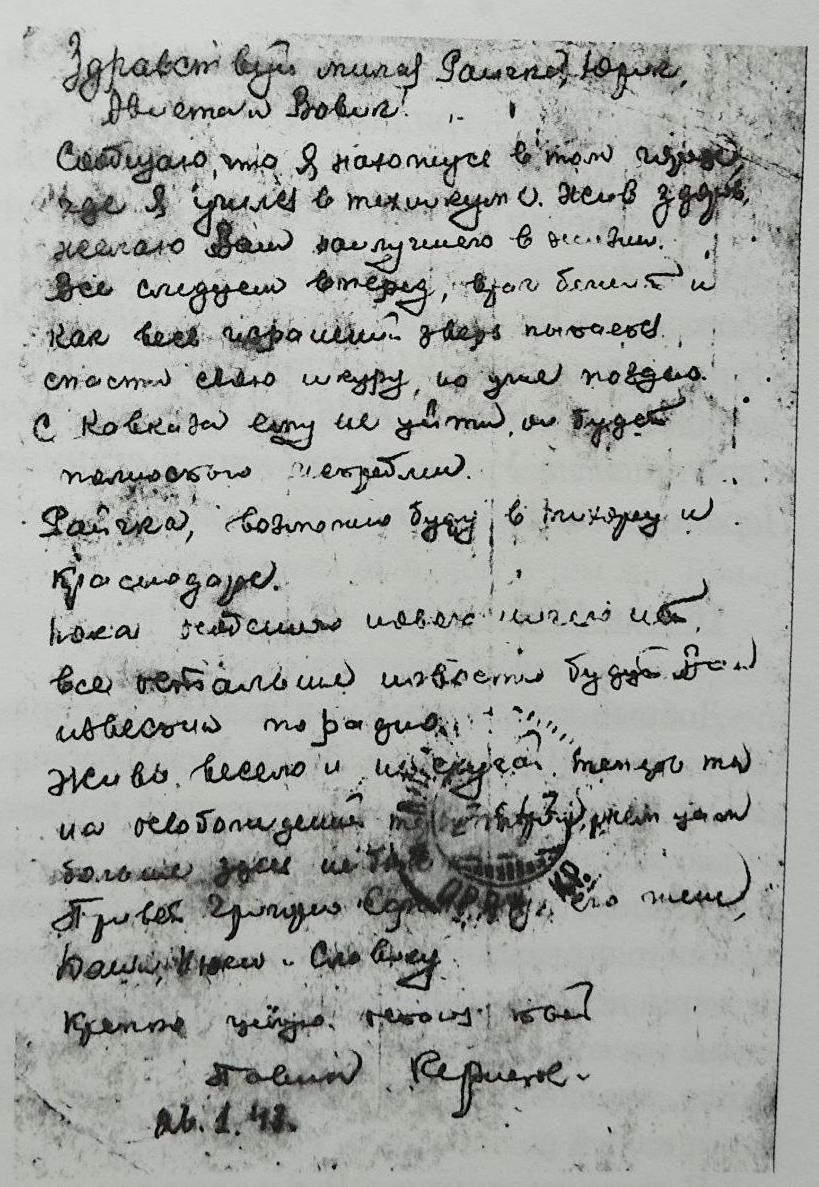 Здравствуй милая Раичка, Юрик,
и Вовик!
Сообщаю, что я нахожусь в том городе,
где я учился в техникуме. Жив здоров,
желаю Вам наилучшего в жизни.
Все следуем вперед, враг бежит и
как весь израненный зверь пытается
спасти свою шкуру, но уже поздно.
С Кавказа ему не уйти, он будет
полностью истреблен.
Раичка, возможно буду в тихорец и
Краснодаре.
Пока особенно нового ничего нет,
все остальные известия будут Вам
известны по радио.
Живи весело и не скучай, теперь ты
на освобожденной
больше здесь не
Привет Григорию его жене,
и Славику
Крепко целую остаюсь твой
Павел
26.1.43.